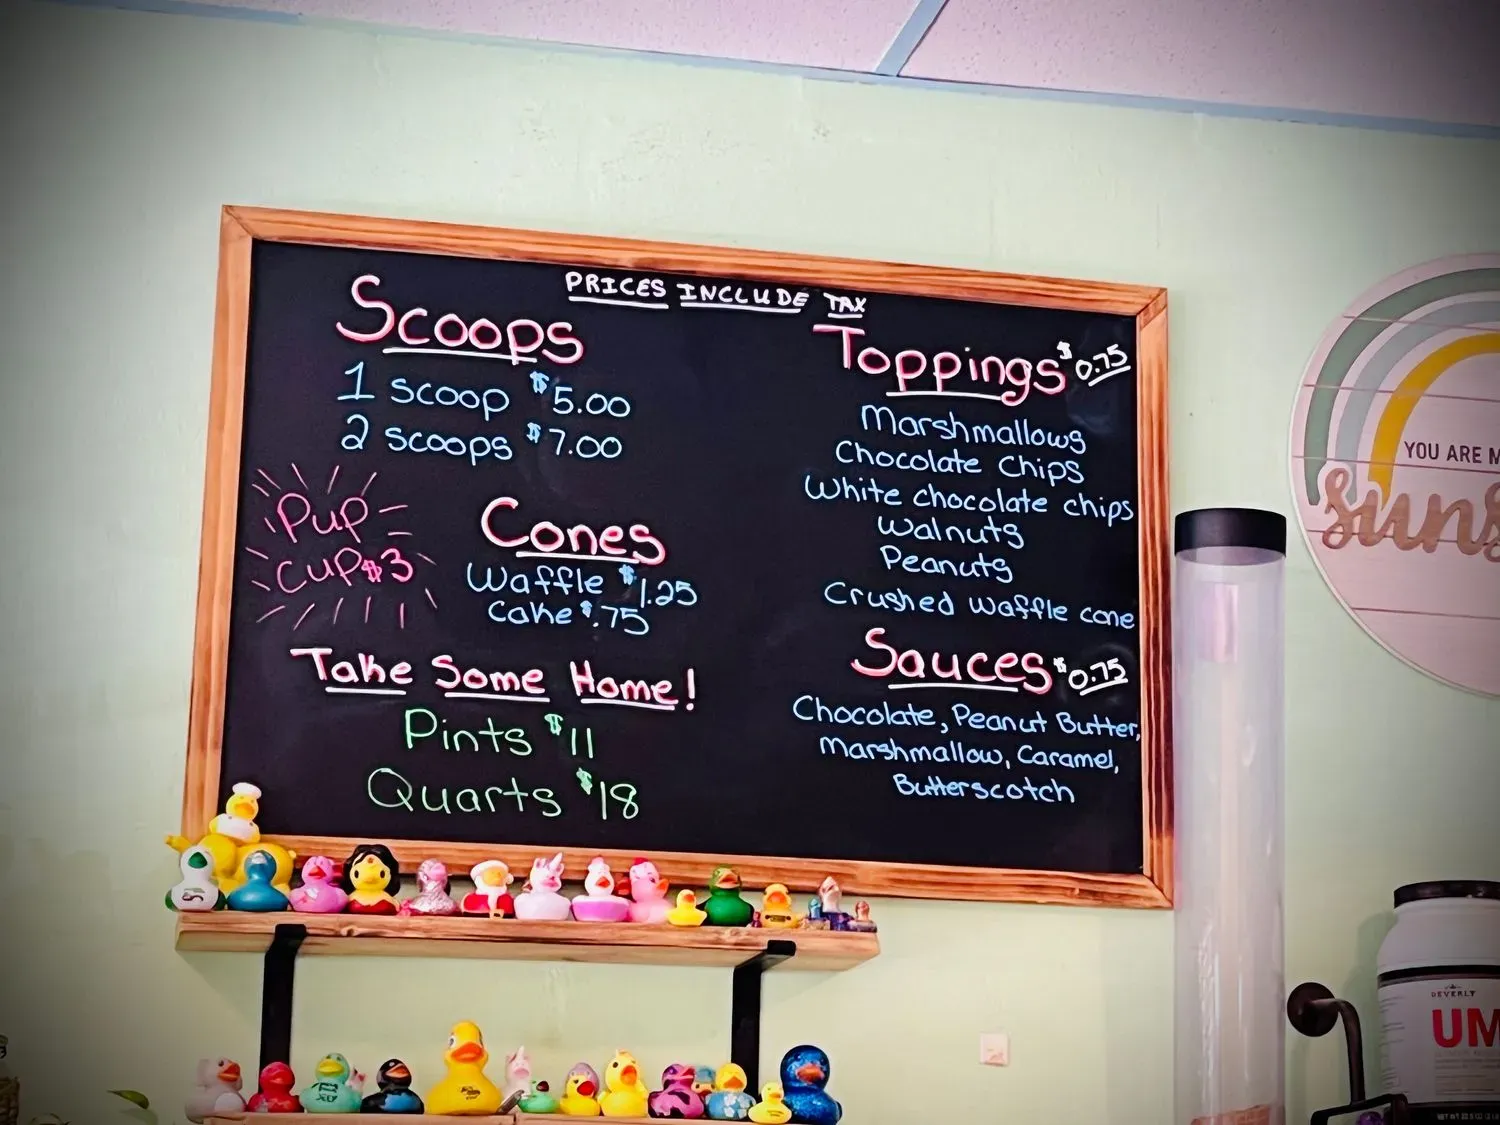 PRICES INCLUDE TAX
Scoops
1 scoop $5.00
2 scoops $7.00
Pup
cup $3
Cones
Waffle $1.25
Cake $.75
Take Some Home!
Pints $11
Quarts $18
Toppings $0.75
Marshmallows
Chocolate Chips
White chocolate chips
Walnuts
Peanuts
Crushed waffle cone
Sauces $0.75
Chocolate, Peanut Butter,
Marshmallow, Caramel,
Butterscotch
YOU ARE M
suns
DEVERLY
UM